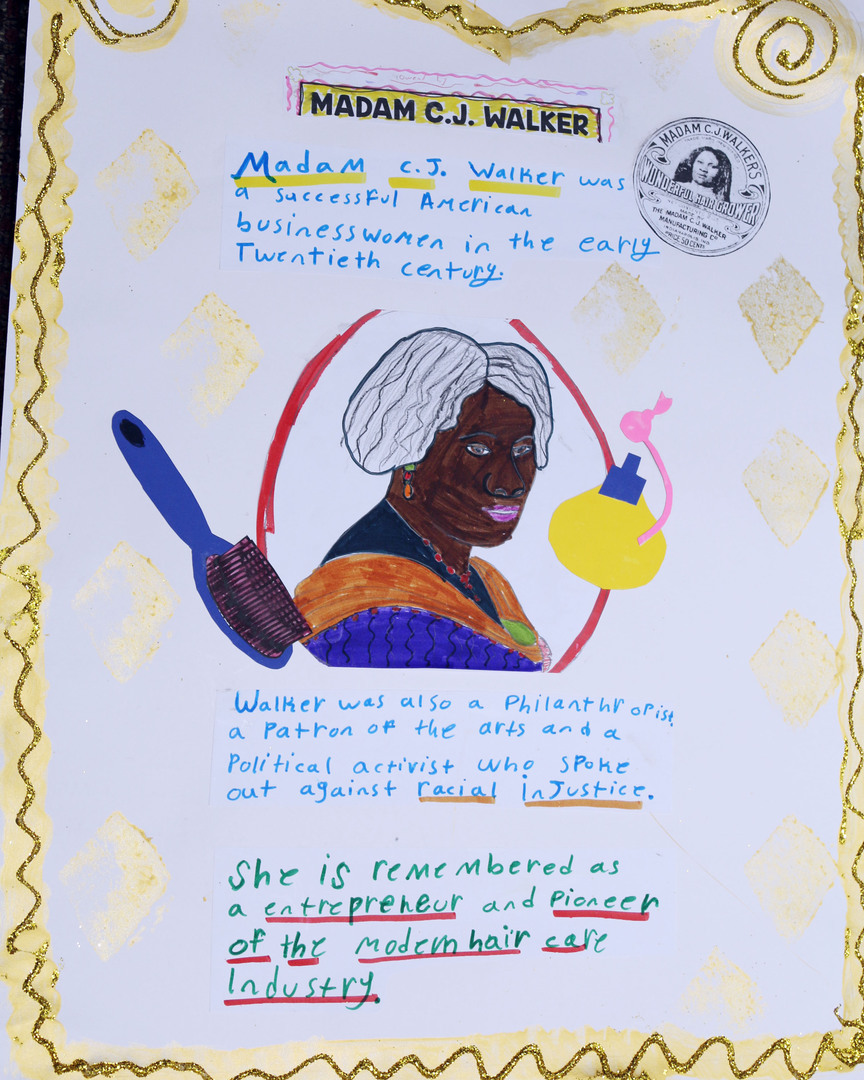 MADAM C.J. WALKER
Madam C.J. Walker was
a successful American
businesswomen in the early
Twentieth century.
MADAM C.J. WALKER'S
WONDERFUL HAIR GROWER
THE MADAM C.J. WALKER
MANUFACTURING CO.
PRICE 50 CENTS
Walker was also a Philanthropist,
a Patron of the arts and a
Political activist who spoke
out against racial inJustice.
She is remembered as
a entrepreneur and Pioneer
of the modern hair care
Industry.